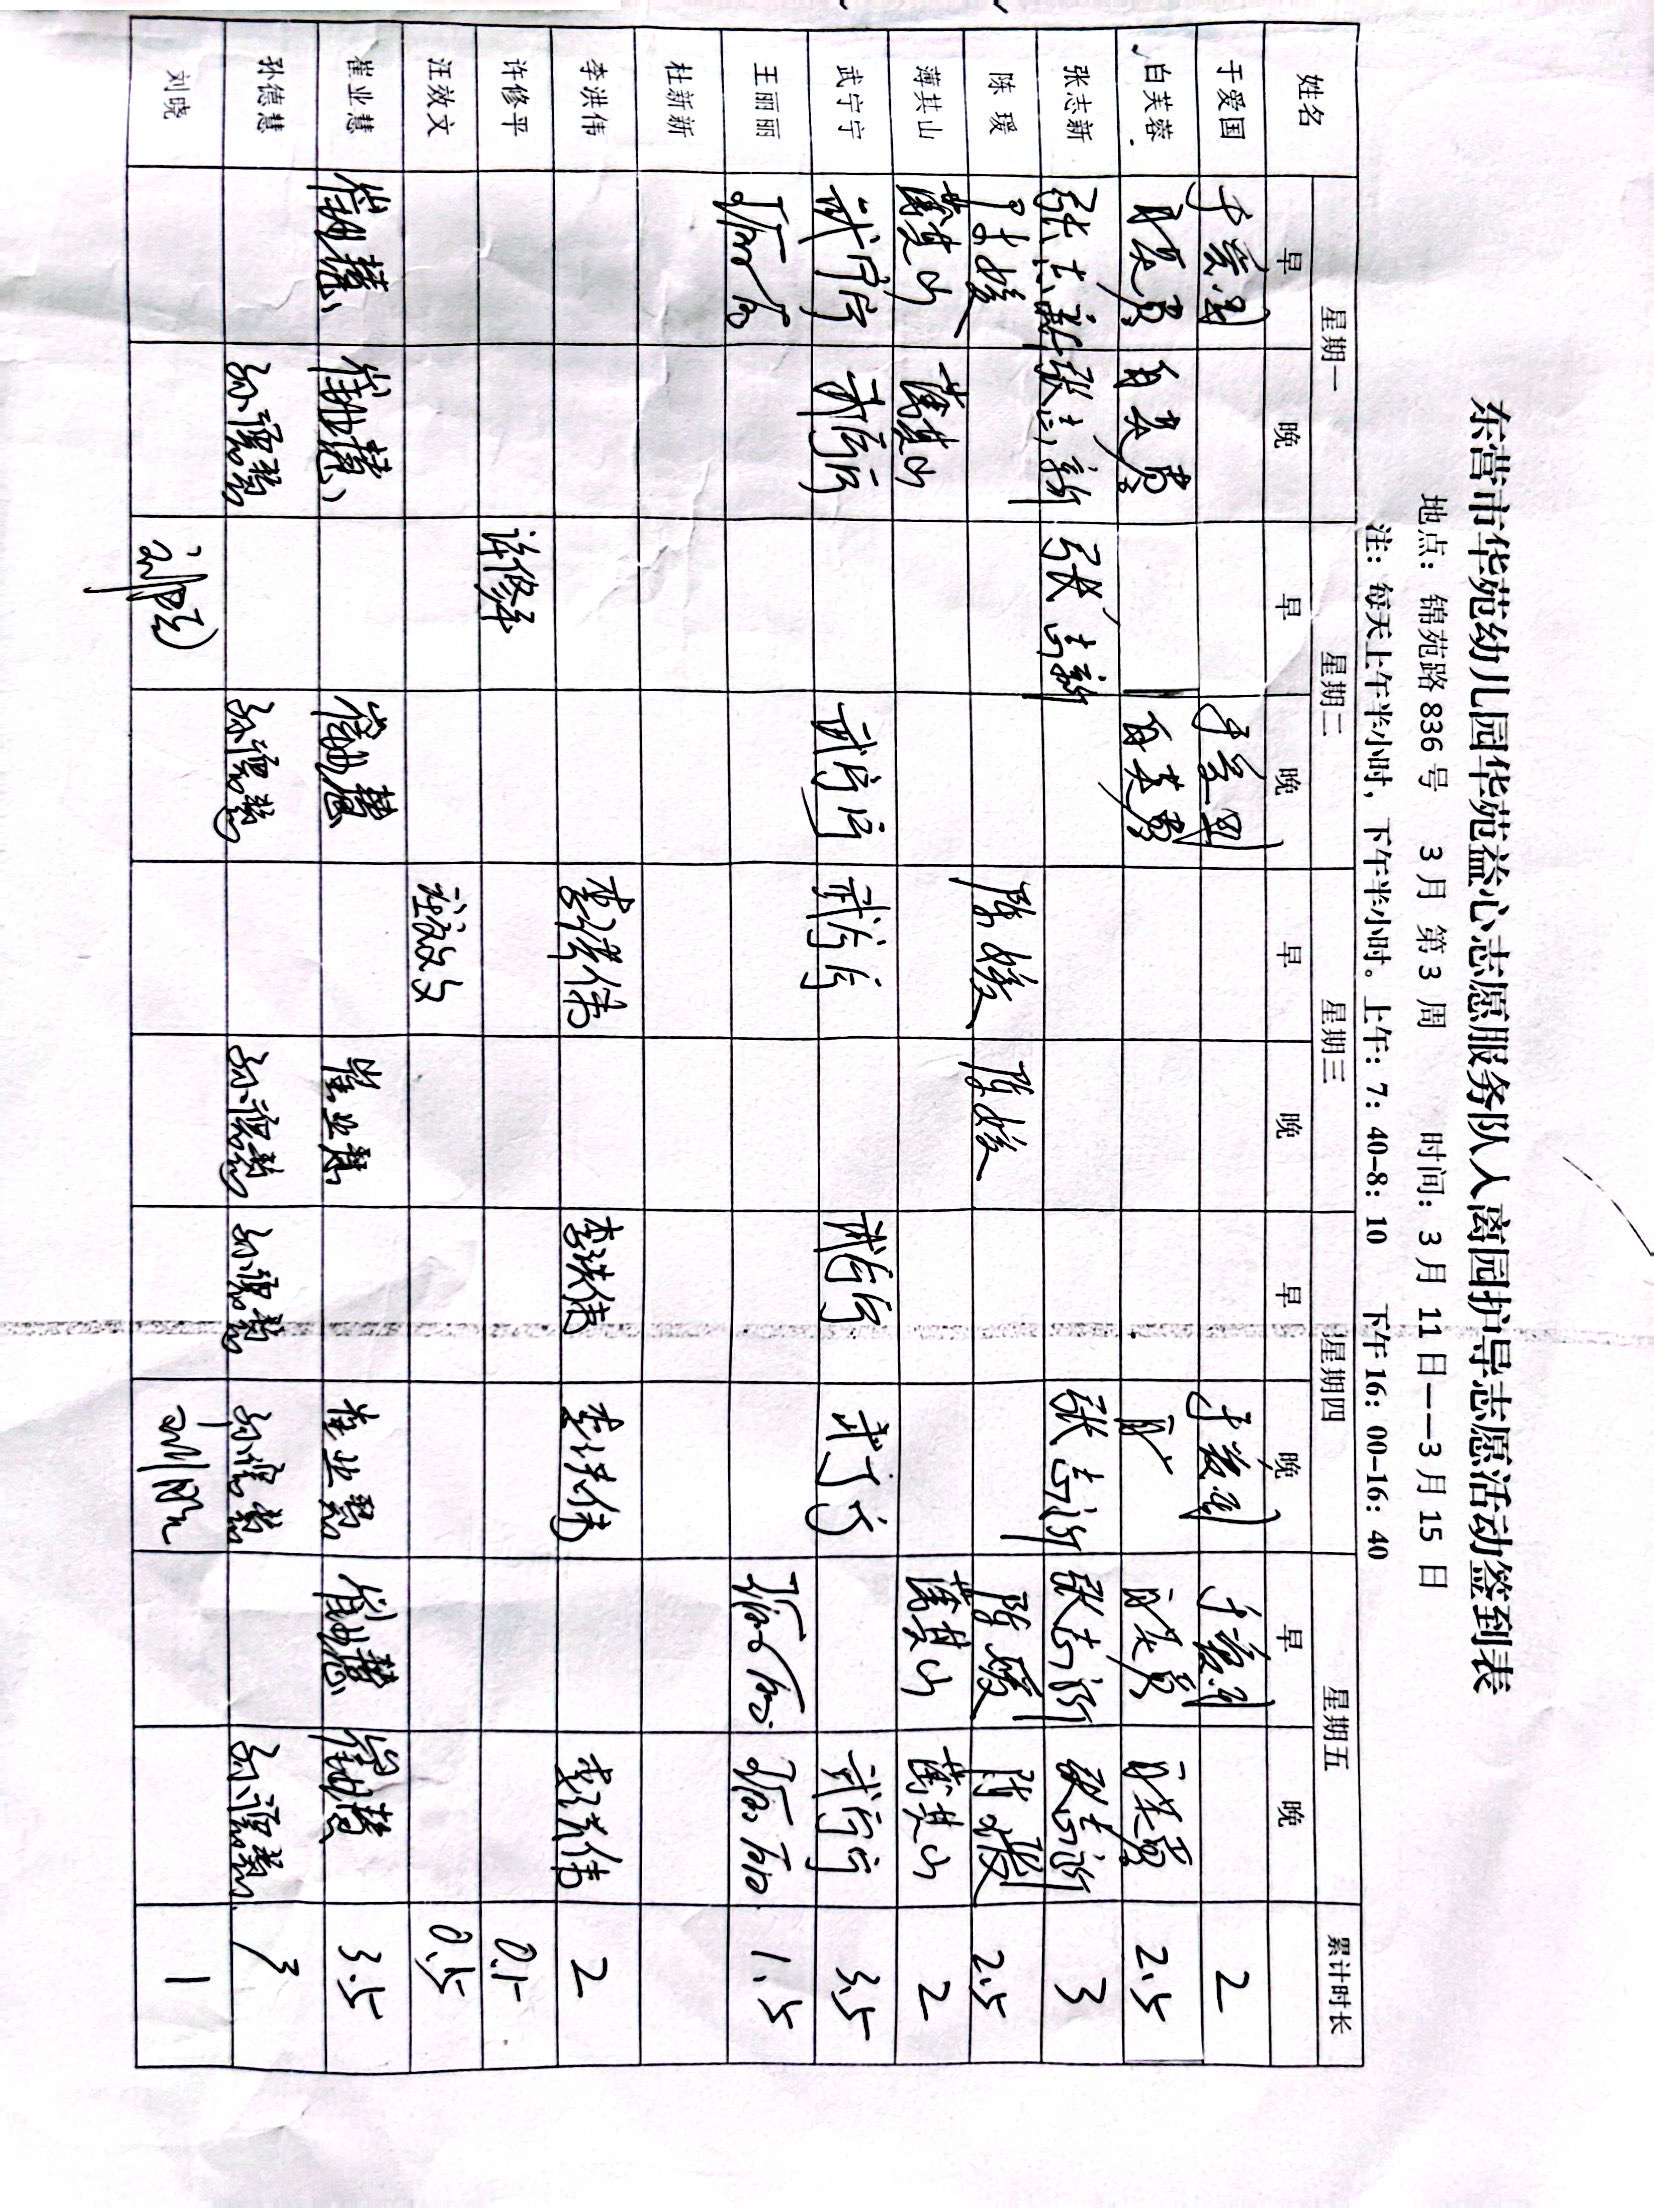 东营市华苑幼儿园华苑益心志愿服务队人离园护导志愿活动签到表
地点：锦苑路836号 3月 第3周 时间：3月 11日——3月15日
注：每天上午半小时，下午半小时。上午：7：40-8：10 下午16：00-16：40
姓名 星期一 星期二 星期三 星期四 星期五 累计时长
早 晚 早 晚 早 晚 早 晚 早 晚
于爱国 于爱国 于爱国 于爱国 于爱国 2
白芙蓉 白芙蓉 白芙蓉 白芙蓉 白芙蓉 白芙蓉 2.5
张志新 张志新 张志新 张志新 张志新 张志新 张志新 3
陈瑗 陈瑗 陈瑗 陈瑗 陈瑗 2.5
薄其山 薄其山 薄其山 薄其山 薄其山 2
武宁宁 武宁宁 武宁宁 武宁宁 武宁宁 武宁宁 武宁宁 武宁宁 3.5
王丽丽 王丽丽 王丽丽 王丽丽 1.5
杜新新
李洪伟 李洪伟 李洪伟 李洪伟 李洪伟 2
许修平 许修平 0.5
汪效文 汪效文 0.5
崔业慧 崔业慧 崔业慧 崔业慧 崔业慧 崔业慧 崔业慧 崔业慧 3.5
孙德慧 孙德慧 孙德慧 孙德慧 孙德慧 孙德慧 孙德慧 3
刘晓 刘晓 刘晓 1